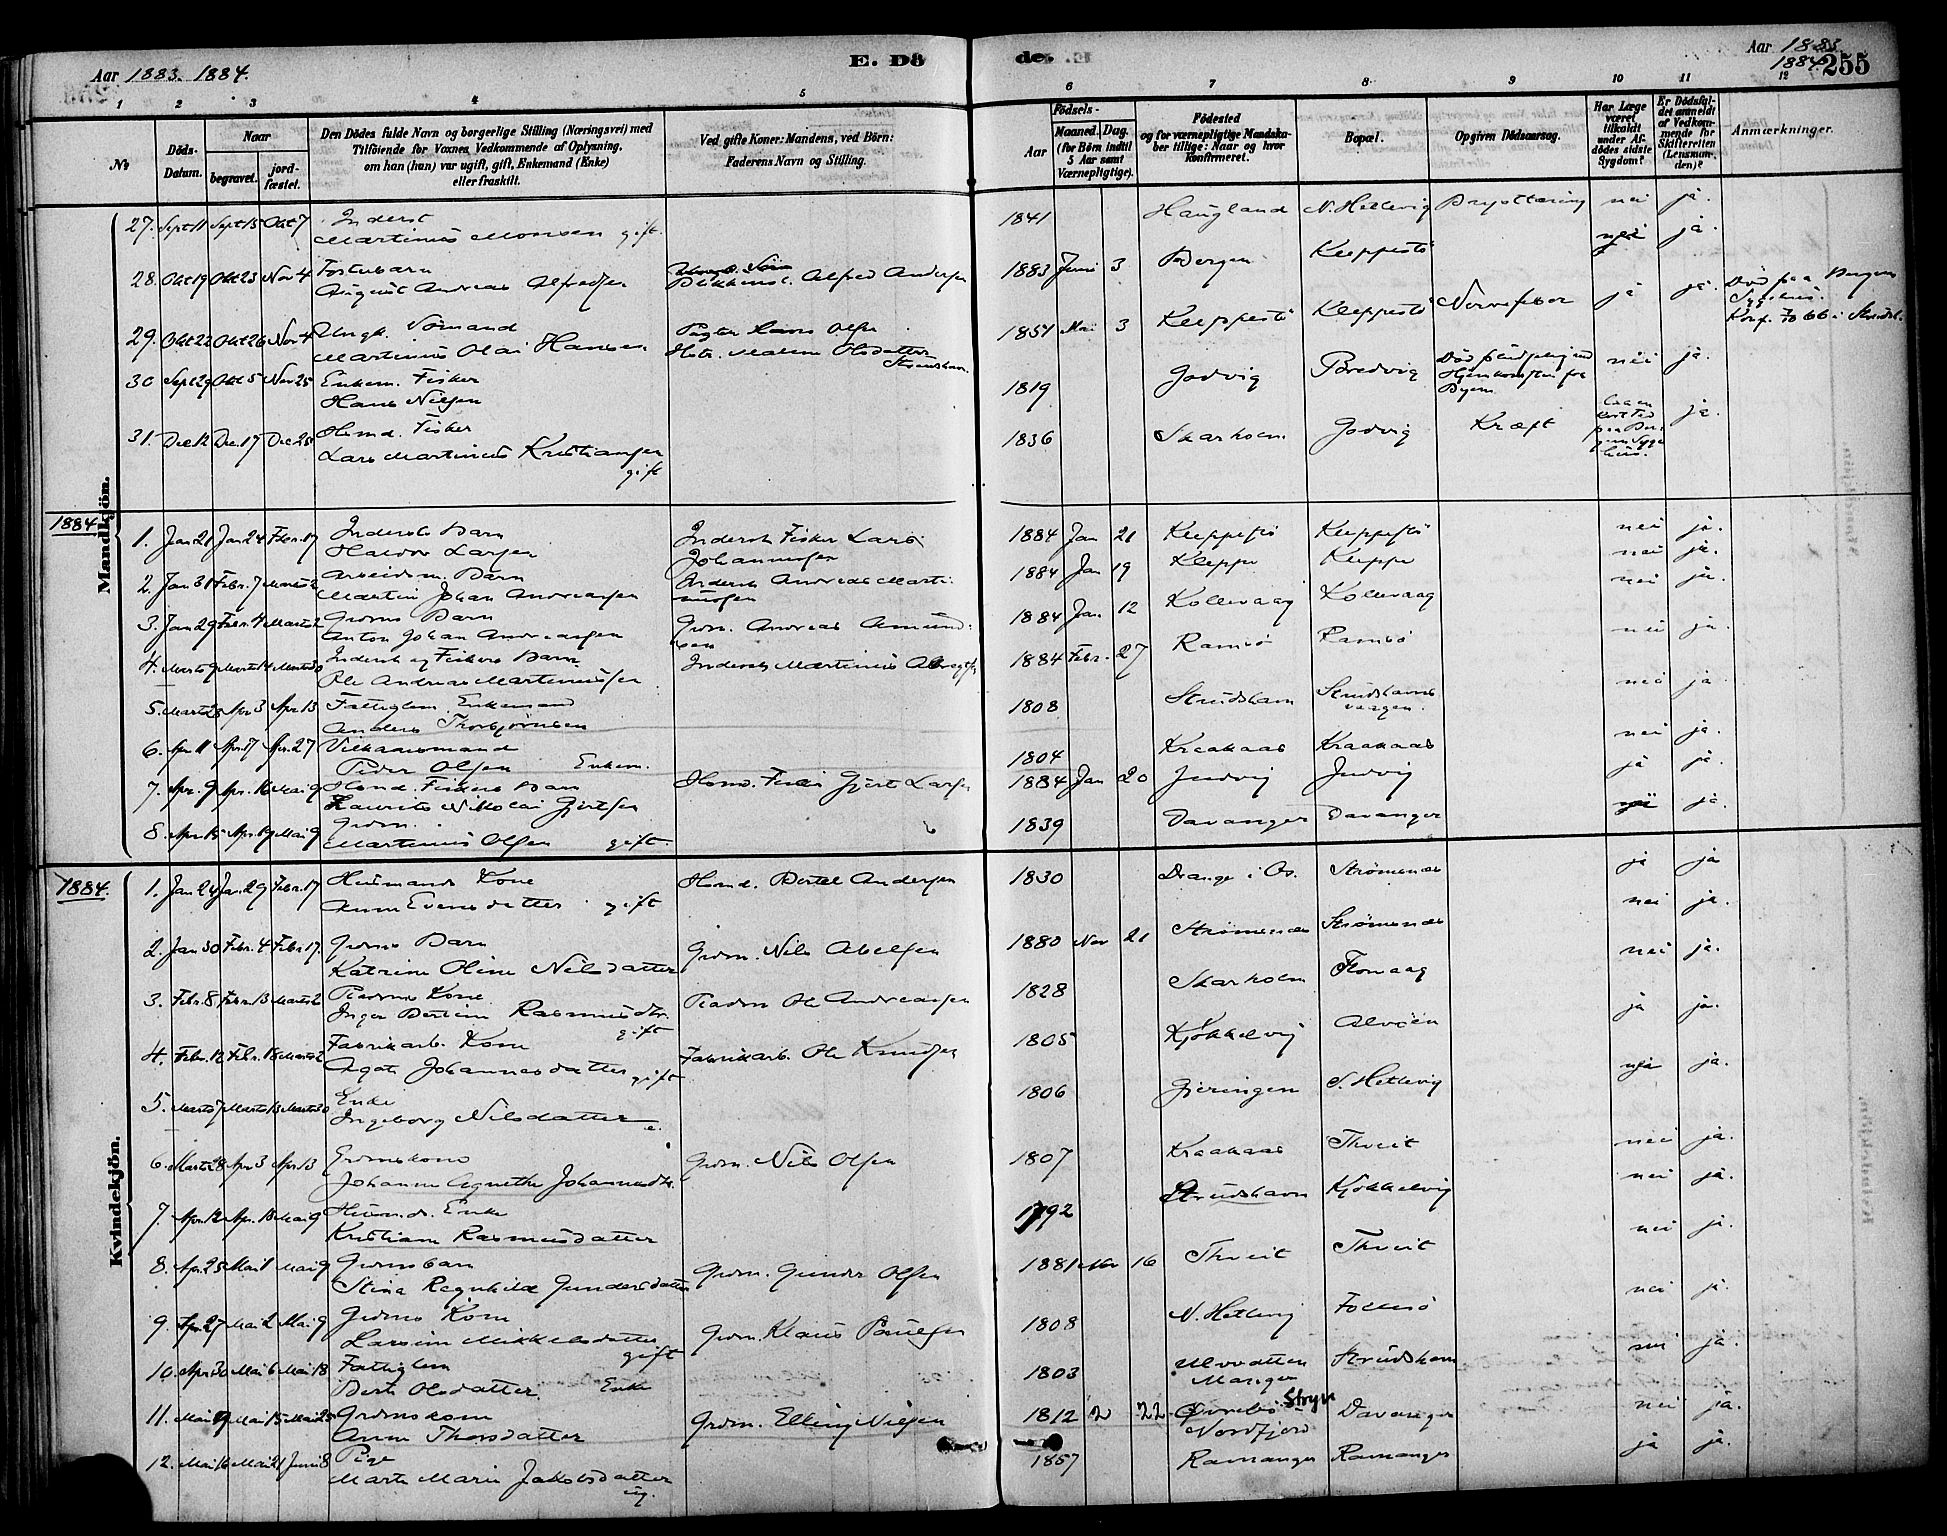 Aar 1883. 1884.
E. Dö
de. E
Aar 1883
1884
255
1 2 3 4 5 6 7 8 9 10 11 12
No
Döds-
Datum.
Naar
begravet.
jord-
fæstet.
Den Dödes fulde Navn og borgerlige Stilling (Næringsvei) med
Tilföiende for Voxnes Vedkommende af Oplysning,
om han (hun) var ugift, gift, Enkemand (Enke)
eller fraskilt.
Ved gifte Koner: Mandens, ved Börn:
Faderens Navn og Stilling.
Födsels-
Aar
Maaned. Dag.
(for Börn indtil
5 Aar samt
Værnepligtige).
Födested
og for værnepligtige Mandska-
ber tillige: Naar og hvor
konfirmeret.
Bopæl.
Opgiven Dödsaarsag.
Har Læge
været
tilkaldt
under Af-
dödes sidste
Sygdom?
Er Dödsfal-
det anmeldt
af Vedkom-
mende for
Skifteretten
(Lensman-
den)?
Anmærkninger.
Mandkjön.
27. Sept 11 Sept 15 Okt 7 Inderst
Martinus Monsen gift. 1841 Haugland N. Hetlevig Brystbetændelse nei ja.
28. Okt 19 Okt 23 Nov 4 Fosterbarn
August Andreas Alfredsen Alfred Andersen 1883 Juni 3 Bergen Kleppestö nei ja.
29. Okt 22 Okt 26 Nov 4 Ungk. Sömand
Martinus Olai Hansen 1854 Mai 3 Kleppestö Kleppestö Nervefeber ja ja. Död paa Bergens
Sygehus.
30 Sept 29 Okt 5 Nov 25 Enkem. Fisker
Hans Nilsen 1819 Godvig Bredvig nei ja.
31. Dec 12 Dec. 17 Dec 25 Husmd. Fisker
Lars Martinus Kristiansen
gift 1836 Skarholm. Godvig Kræft ja.
1884
1. Jan 21 Jan 24 Febr. 17 Inderst Barn
Haldor Larsen Inderst Fisker Lars
Johannesen 1884 Jan 21 Kleppestö Kleppestö nei ja.
2. Jan 31 Febr. 7 Marts 2 Arbeidsm. Barn
Martin Johan Andreassen Inderst Andreas Marti-
nusen 1884 Jan 19 Kleppe Kleppe nei ja.
3. Jan 29 Febr. 4 Marts 2 Grdms Barn
Anton Johan Andreassen Grdm. Andreas Amund-
sen 1884 Jan. 12 Kollevaag Kollevaag nei ja.
4. Marts 9 Marts 14 Marts 30 Inderst og Fiskers Barn
Ole Andreas Martinussen Inderst Martinus 1884 Febr. 27 Ramsö Ramsö nei ja.
5. Marts 28 Apr 3 Apr. 13 Fattiglem Enkemand
Anders Thorbjörnsen 1808 Strudshavn Strudshavns
vaagen. nei ja
6. Apr 11 Apr. 17 Apr. 27 Vilkaarsmand
Peder Olsen Enkem. 1804 Kraakaas Kraakaas nei ja.
7. Apr. 9 Apr. 16 Mai 9 Husmd. Fiskers Barn
Laurits Nikolai Gjertsen Husmd. Fisker Gjert Larsen 1884 Jan 20 Juvvig Juvvig ja ja.
8. Apr. 15 Apr. 19 Mai 9 Grdm.
Martinus Olsen gift 1839 Davanger Davanger nei ja.
1884.
Kvindekjön.
1. Jan 24 Jan 29 Febr. 17 Husmands Kone
Anna Evensdatter gift Husmd. Bertel Andersen 1830 Drange i Os. Strömsnæs ja ja
2. Jan 30 Febr. 4 Febr. 17. Grdms Barn
Katrine Oline Nilsdatter Grdm. Nils Abelsen 1880 Nov 21 Strömsnæs Strömsnæs nei ja.
3. Febr. 8 Febr. 13 Marts 2 Kone
Inger Bertine Rasmusdtr.
gift Ole Andreassen 1828 Skarholm Florvaag nei ja.
4. Febr. 12 Febr. 18 Marts 2 Fabrikarb. Kone
Agate Johannesdatter gift Fabrikarb. Ole Knudsen 1805 Kjökkelvig Alvöen ja ja.
5. Marts 7 Marts 13 Marts 30 Enke
Ingeborg Nilsdatter e. 1806 Gjeringen S. Hetlevig nei ja.
6. Marts 28 Apr 3 Apr 13 Grdmskone
Johanne Agnethe Johannesdtr. Grdm. Nils Olsen 1807 Kraakaas Thveit nei ja.
7. Apr. 12 Apr. 18 Mai 9 Husmds. Enke
Kristiane Rasmusdatter 1792 Strudshavn Kjökkelvig nei ja.
8. Apr. 25 Mai 1 Mai 9 Grdmsbarn
Stina Regnhilde Gundersdatter Grdm. Gunder Olsen 1881 Nov 16 Thveit Thveit nei ja.
9. Apr 27 Mai 2 Mai 9 Grdms Kone
Larsine Mikkelsdatter
gift Grdm. Klaus Paulsen 1808 N. Hetlevig Follesö nei ja.
10. Apr 30 Mai 6 Mai 18 Fattiglem
Berte Olsdatter Enke 1803 Ulvvatten
Manger Strudshavn nei ja.
11. Mai 9 Mai 15 Mai 25 Grdmskone
Anne Thorsdatter Grdm. Elling Nilsen 1812 2 22 Övrebö Stryn
Nordfjord Davanger nei ja.
12. Mai 16 Mai 21 Juni 8 Pige
Marte Marie Jakobsdatter
ug. 1857 Ramanger Ramanger ja ja.